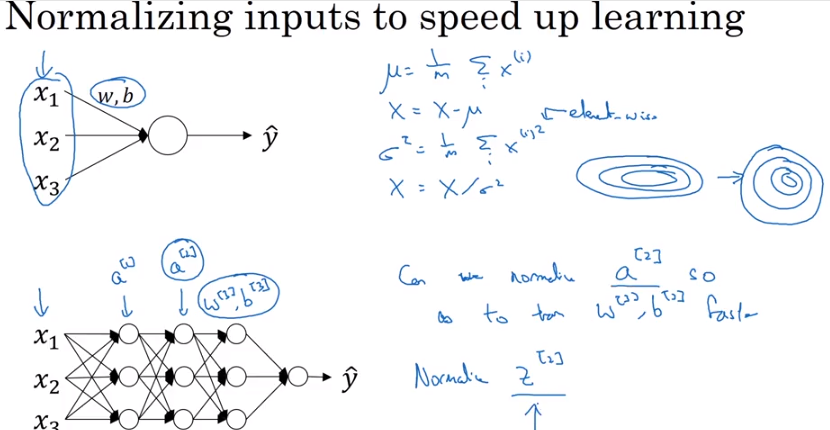 Normalizing inputs to speed up learning
x₁
w, b
x₂
ŷ
x₃
μ = 1/m Σᵢ x⁽ⁱ⁾
X = X - μ
σ² = 1/m Σᵢ x⁽ⁱ⁾² ← element-wise
X = X/σ²
a[1] a[2]
w[3], b[3]
x₁
x₂
ŷ
x₃
Can we normalize a[2] so
as to train w[3], b[3] faster
Normalize z[2]